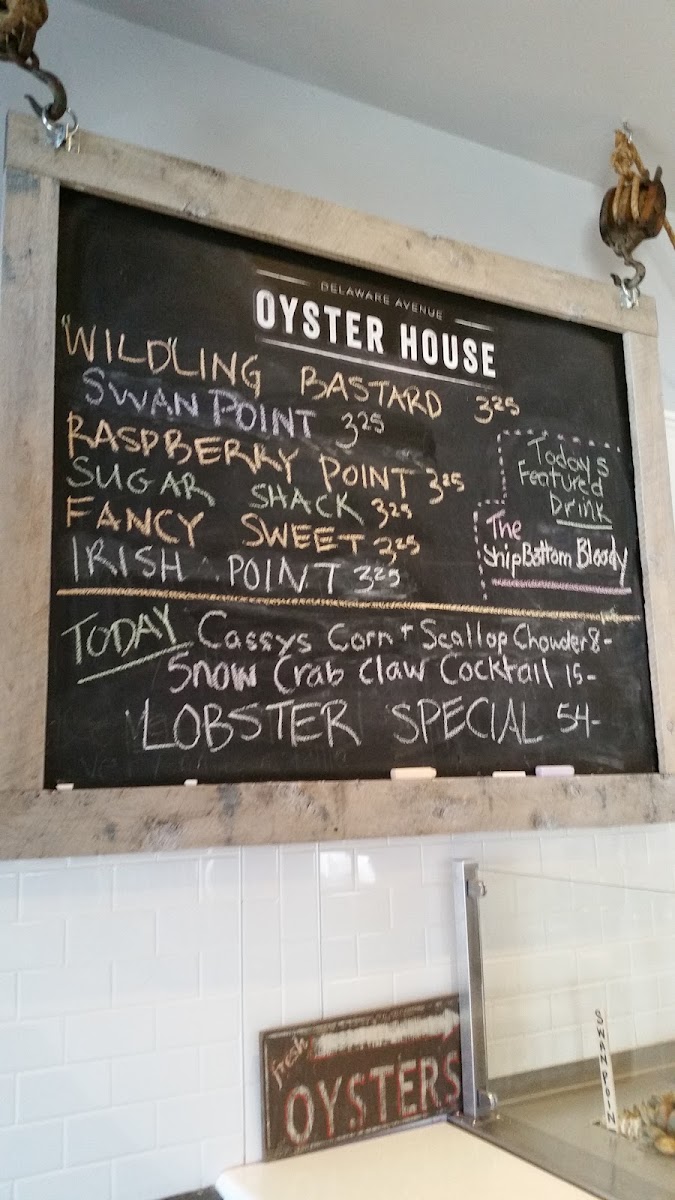 DELAWARE AVENUE
OYSTER HOUSE
"WILD"LING BASTARD 3.25
SWAN POINT 3.25
RASPBERRY POINT 3.25
SUGAR SHACK 3.25
FANCY SWEET 3.25
IRISH POINT 3.25
Today's
Featured
Drink
The
Ship Bottom Bloody
TODAY Cassys Corn + Scallop Chowder 8-
Snow Crab Claw Cocktail 15-
LOBSTER SPECIAL 54-
fresh
OYSTERS